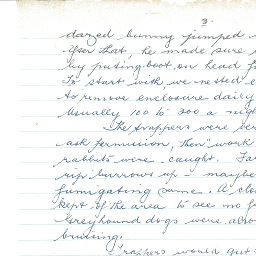 3.
dazed bunny jumped
After that, he made sure
by puting boot on head
To start with we netted
to remove enclosure dairy
Usually 100 to 200 a night
The trappers were
ask permission, then work
rabbits were caught.
rip burrows up - maybe
fumigating same. A clos
kept of the area to see no
Greyhound dogs were also
burning.
Trappers would